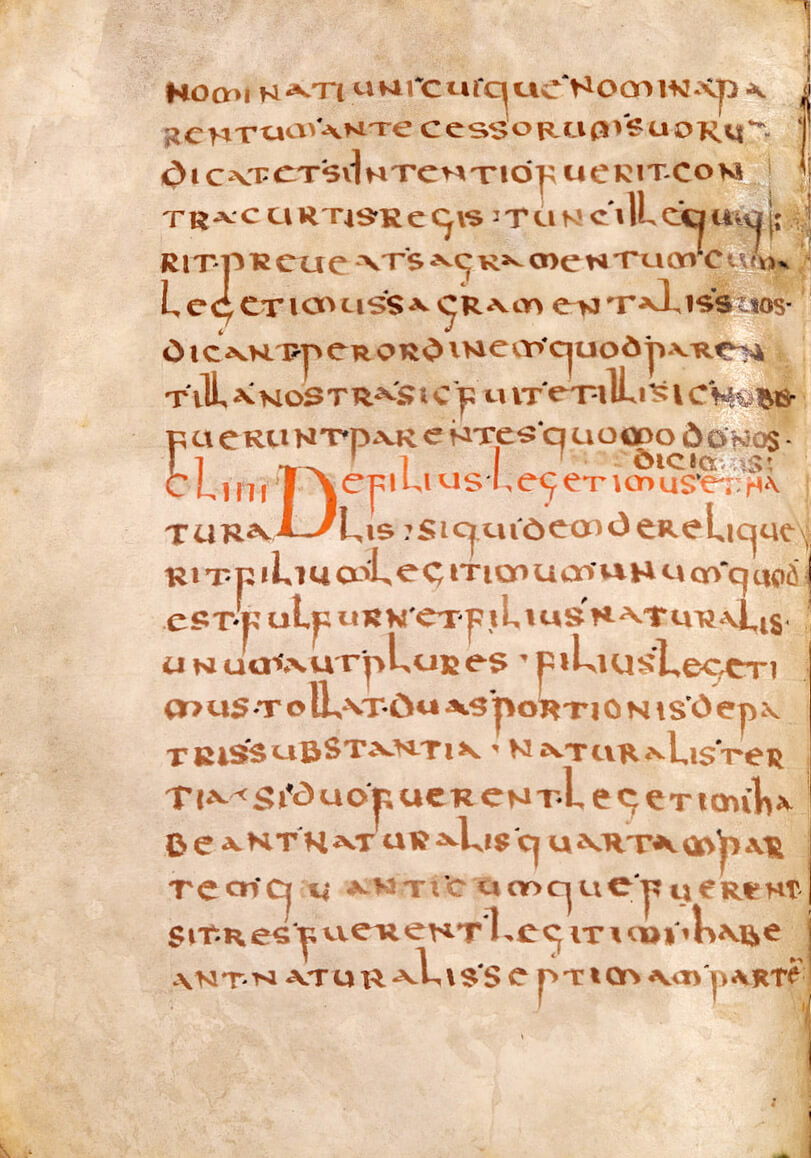 nominati unicuique nomina pa
rentum antecessorum suoru
dicat et si intentio fuerit con
tra curtis regis tunc ille qui q:
rit preueat sagramentum cum
legetimus sagramentalis suos
dicant per ordinem quod paren
ti illa nostra sic fuit et illi sic nobis
fuerunt parentes quomodo nos
dicimus:
CLIIII De filius legetimus et na
turalis : si quidem derelique
rit filium legitimum unum quod
est fulfurn et filius naturalis
unum aut plures · filius legeti
mus tollat duas portionis de pa
tris substantia · naturalis ter
tia si duo fuerent legetimi ha
beant naturalis quartam par
tem quanticumque fuerent
si tres fuerent legitimi habe
ant naturalis septimam parte